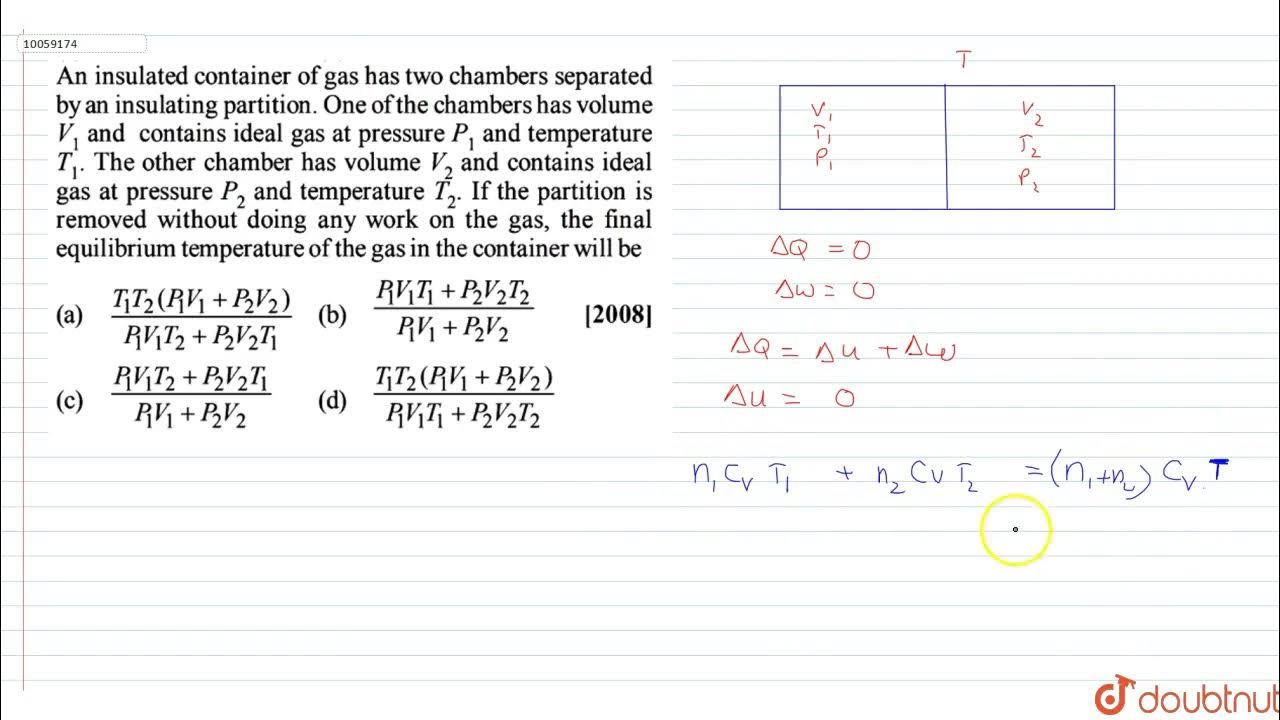 10059174
An insulated container of gas has two chambers separated
by an insulating partition. One of the chambers has volume
V₁ and contains ideal gas at pressure P₁ and temperature
T₁. The other chamber has volume V₂ and contains ideal
gas at pressure P₂ and temperature T₂. If the partition is
removed without doing any work on the gas, the final
equilibrium temperature of the gas in the container will be
(a) T₁T₂(P₁V₁ + P₂V₂) / P₁V₁T₂ + P₂V₂T₁ (b) P₁V₁T₁ + P₂V₂T₂ / P₁V₁ + P₂V₂ [2008]
(c) P₁V₁T₂ + P₂V₂T₁ / P₁V₁ + P₂V₂ (d) T₁T₂(P₁V₁ + P₂V₂) / P₁V₁T₁ + P₂V₂T₂
T
V₁ V₂
T₁ T₂
P₁ P₂
ΔQ = 0
Δw = 0
ΔQ = Δu + Δw
Δu = 0
n₁ Cv T₁ + n₂ Cv T₂ = (n₁+n₂) Cv.T
doubtnut